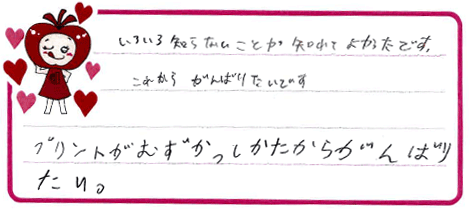 いろいろ知らないことが知れてよかったです。
これから がんばりたいです
プリントがむずかっしかたからがんばり
たい。